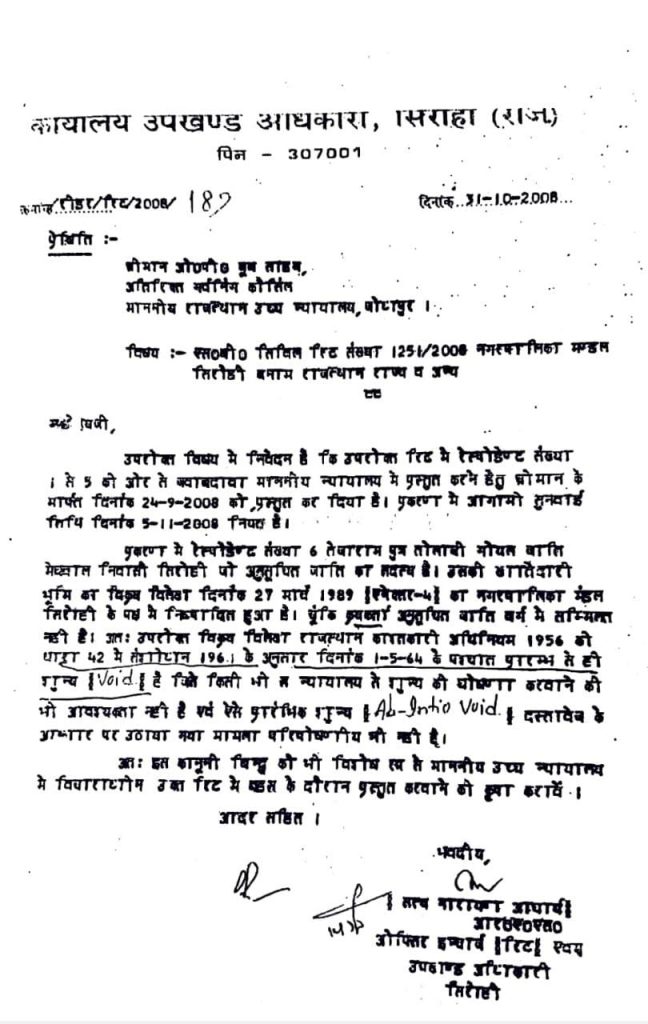 कार्यालय उपखण्ड अधिकारी, सिरोही (राज)
पिन - 307001
क्रमांक/रीडर/रिट/2008/ 187
दिनांक..31-10-2008...
प्रेषिति :-
श्रीमान ओ0पी0 साहब,
अतिरिक्त कौंसिल
माननीय राजस्थान उच्च न्यायालय, जोधपुर ।
विषय :- एस0बी0 सिविल रिट संख्या 1251/2008 नगरपालिका मण्डल
सिरोही बनाम राजस्थान राज्य व अन्य
उपरोक्त विषय मे निवेदन है कि उपरोक्त रिट मे रेस्पोडेण्ट संख्या
1 से 5 की ओर से जवाबदावा माननीय न्यायालय मे प्रस्तुत करने हेतु श्रीमान के
मार्फत दिनांक 24-9-2008 को प्रस्तुत कर दिया है। प्रकरण मे आगामी सुनवाई
तिथि दिनांक 5-11-2008 नियत है।
प्रकरण मे रेस्पोडेण्ट संख्या 6 तेजाराम पुत्र तोलाजी जाति
मेघवाल निवासी सिरोही जो अनुसूचित जाति का सदस्य है। उसकी खातेदारी
भूमि का विक्रय विलेख दिनांक 27 मार्च 1989 का नगरपालिका मंडल
सिरोही के पक्ष मे निष्पादित हुआ है। चूंकि अनुसूचित जाति वर्ग मे सम्मिलित
नही है। अतः उपरोक्त विक्रय विलेख राजस्थान काश्तकारी अधिनियम 1956 की
धारा 42 मे संशोधन 196. के अनुसार दिनांक 1-5-64 के पश्चात प्रारम्भ से ही
शुन्य [Void.] है जिसे किसी भी न्यायालय से शुन्य की घोषणा करवाने की
भी आवश्यकता नही है एवं ऐसे प्रारंभिक शुन्य [Ab-Intio Void.] दस्तावेज के
आधार पर उठाया गया मामला परिपोषणीय भी नही है।
अतः इस कानूनी बिन्दु को भी विशेष रूप से माननीय उच्च न्यायालय
मे विचाराधीन उक्त रिट मे बहस के दौरान प्रस्तुत करवाने की कृपा करावें ।
आदर सहित ।
भवदीय,
[सत्य नारायण आचार्य]
आर0ए0एस0
ओफिसर इन्चार्ज [रिट] एवम्
उपखण्ड अधिकारी
सिरोही